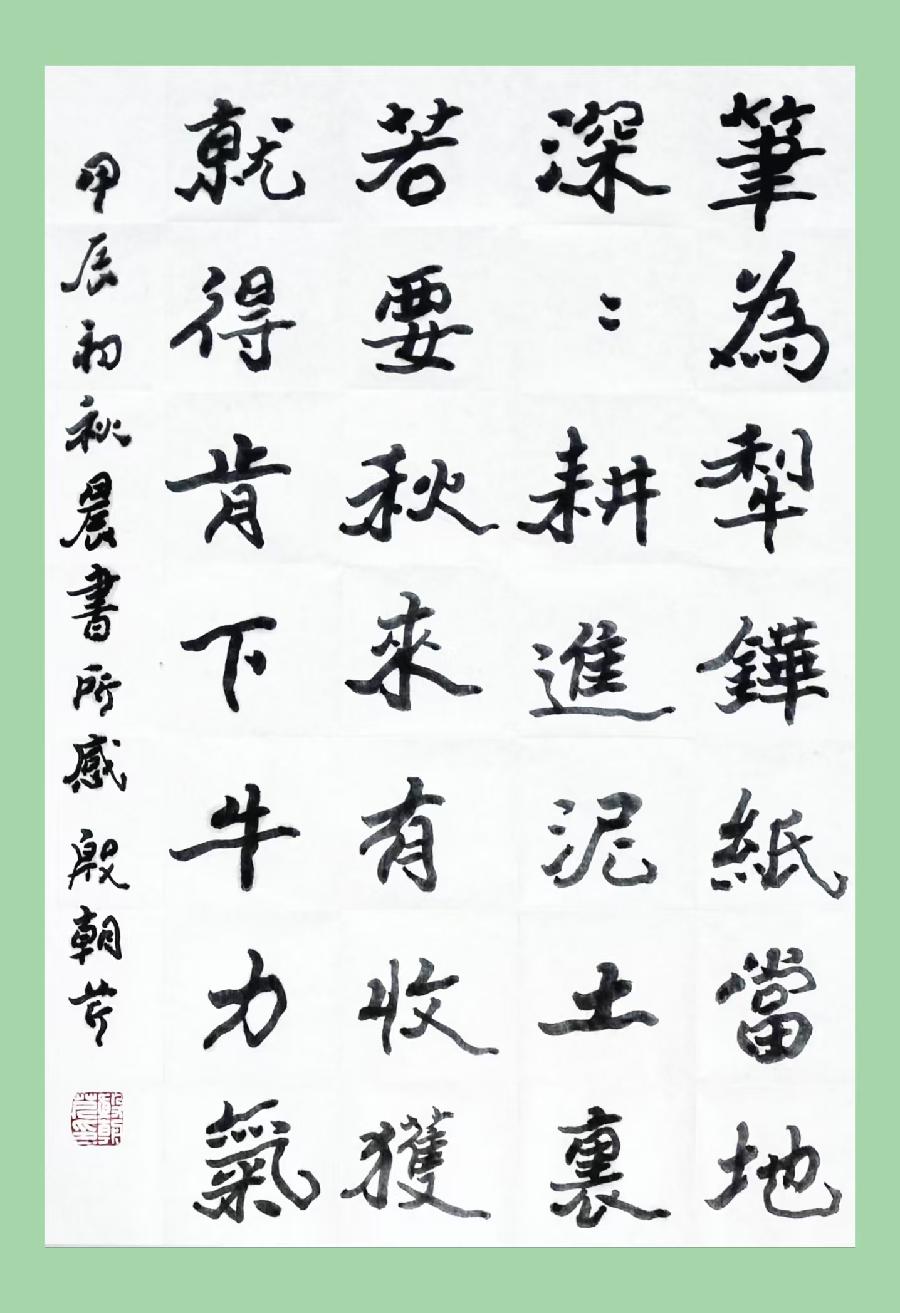 筆為犁鏵紙當地
深〻耕進泥土裏
若要秋來有收獲
就得肯下牛力氣
甲辰初秋晨書所感 殷朝芹